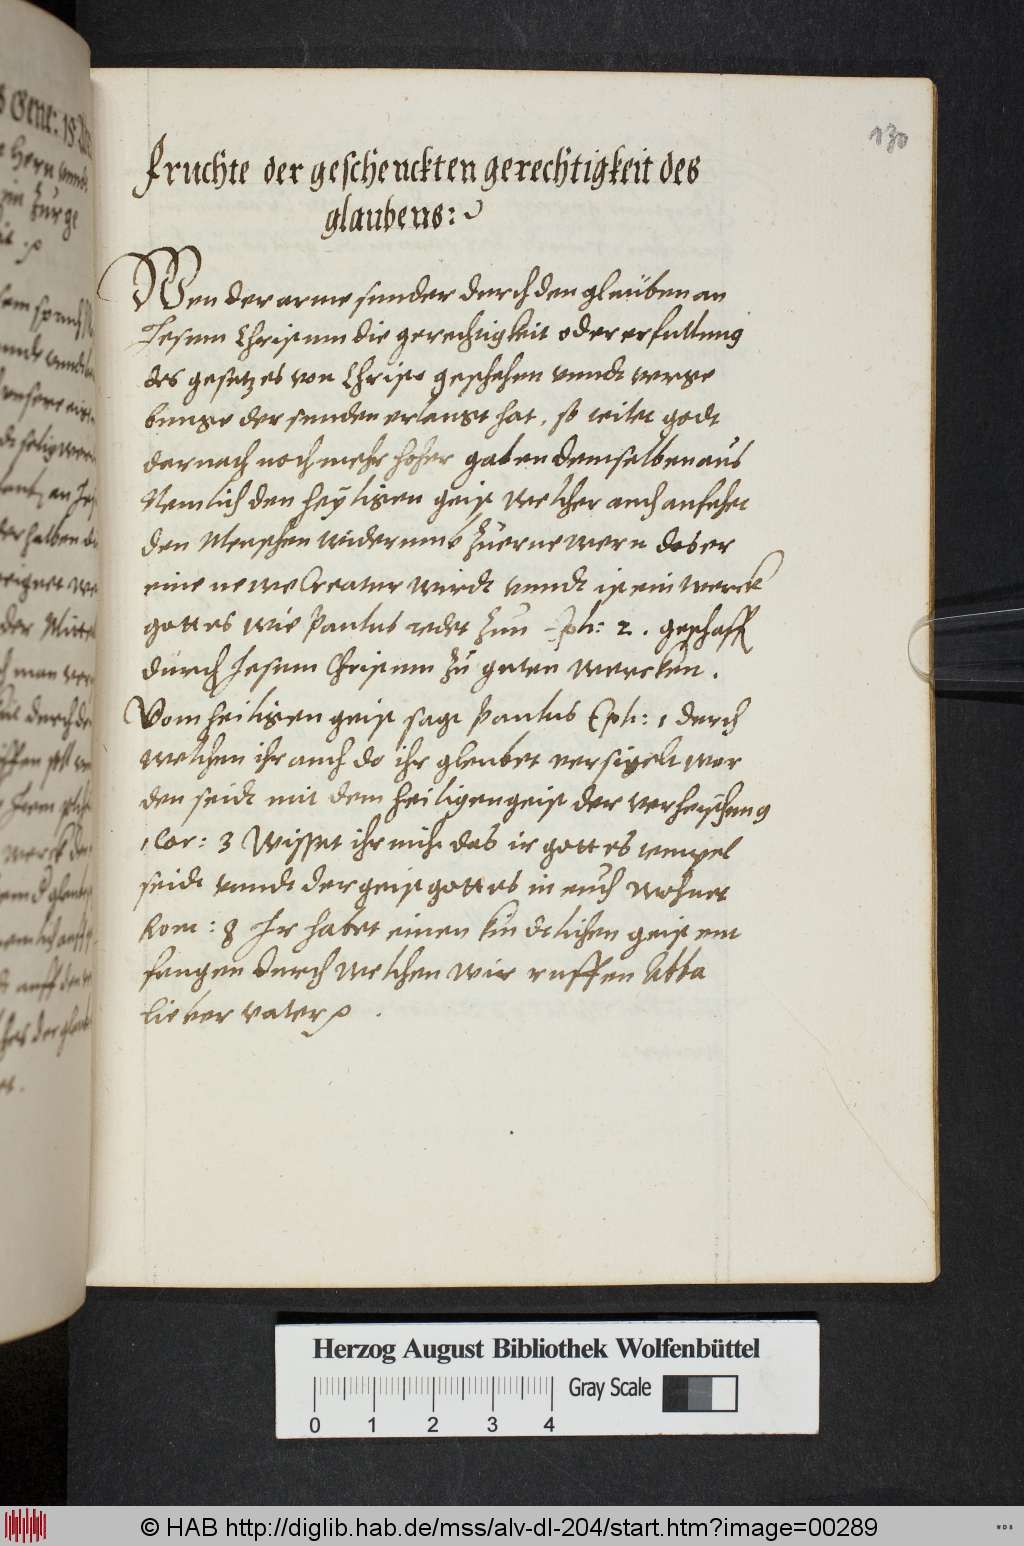 130
Fruchte der geschenckten gerechtigkeit des
glaubens:
Wen der arme sunder durch den glauben an
Jesum Christum die gerechtigkeit oder erfullung
des gesetzes von Christo geschehen vnndt verge
bunge der sunden erlangt hat, so teilet godt
darnach noch mehr hoher gaben demselben aus
Nemlich den heyligen geist welcher auch anfehet
den Menschen widerumb zuernewern das er
eine newe Creatur wirdt vnndt ist ein werck
gottes wie Paulus redet zun Eph: 2. geschaff
durch Jesum Christum zu guten wercken.
Vom heiligen geist sagt Paulus Eph: 1 durch
welchen ihr auch do ihr glaubet versigelt wor
den seidt mit dem heiligen geist der verheischung
1 Cor: 3 Wisset ihr nicht das ir gottes tempel
seidt vnndt der geist gottes in euch wohnet
Rom: 8 Ir habet einen kindtlichen geist em
fangen durch welchen wir ruffen Abba
lieber vater
Herzog August Bibliothek Wolfenbüttel
0 1 2 3 4 Gray Scale
© HAB http://diglib.hab.de/mss/alv-dl-204/start.htm?image=00289